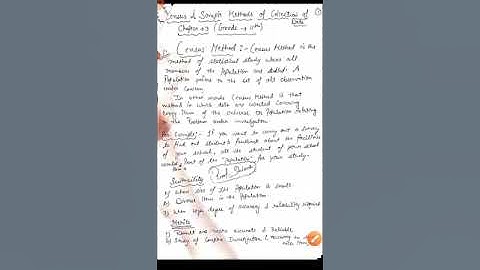 Census & Sample Methods of Collection of Data
Chapter → 3 (Grade → 11th)
Census Method :- Census Method is the
method of statistical study where all
members of the Population are studied. A
Population refers to the set of all observation
under Concern.
In other words Census Method is that
method in which data are collected covering
every item of the universe or Population relating
to the Problem under investigation.
For Example :- If you want to carry out a Survey
to find out student's feedback about the facilities
of your school, all the student of your school
would part of the "population" for your study.
Suitability
a) When size of the Population is small
b) Diverse items in the Population.
c) When high degree of accuracy & reliability required
Merits
1) Result are more accurate & Reliable
2) Study of Complex Investigation &